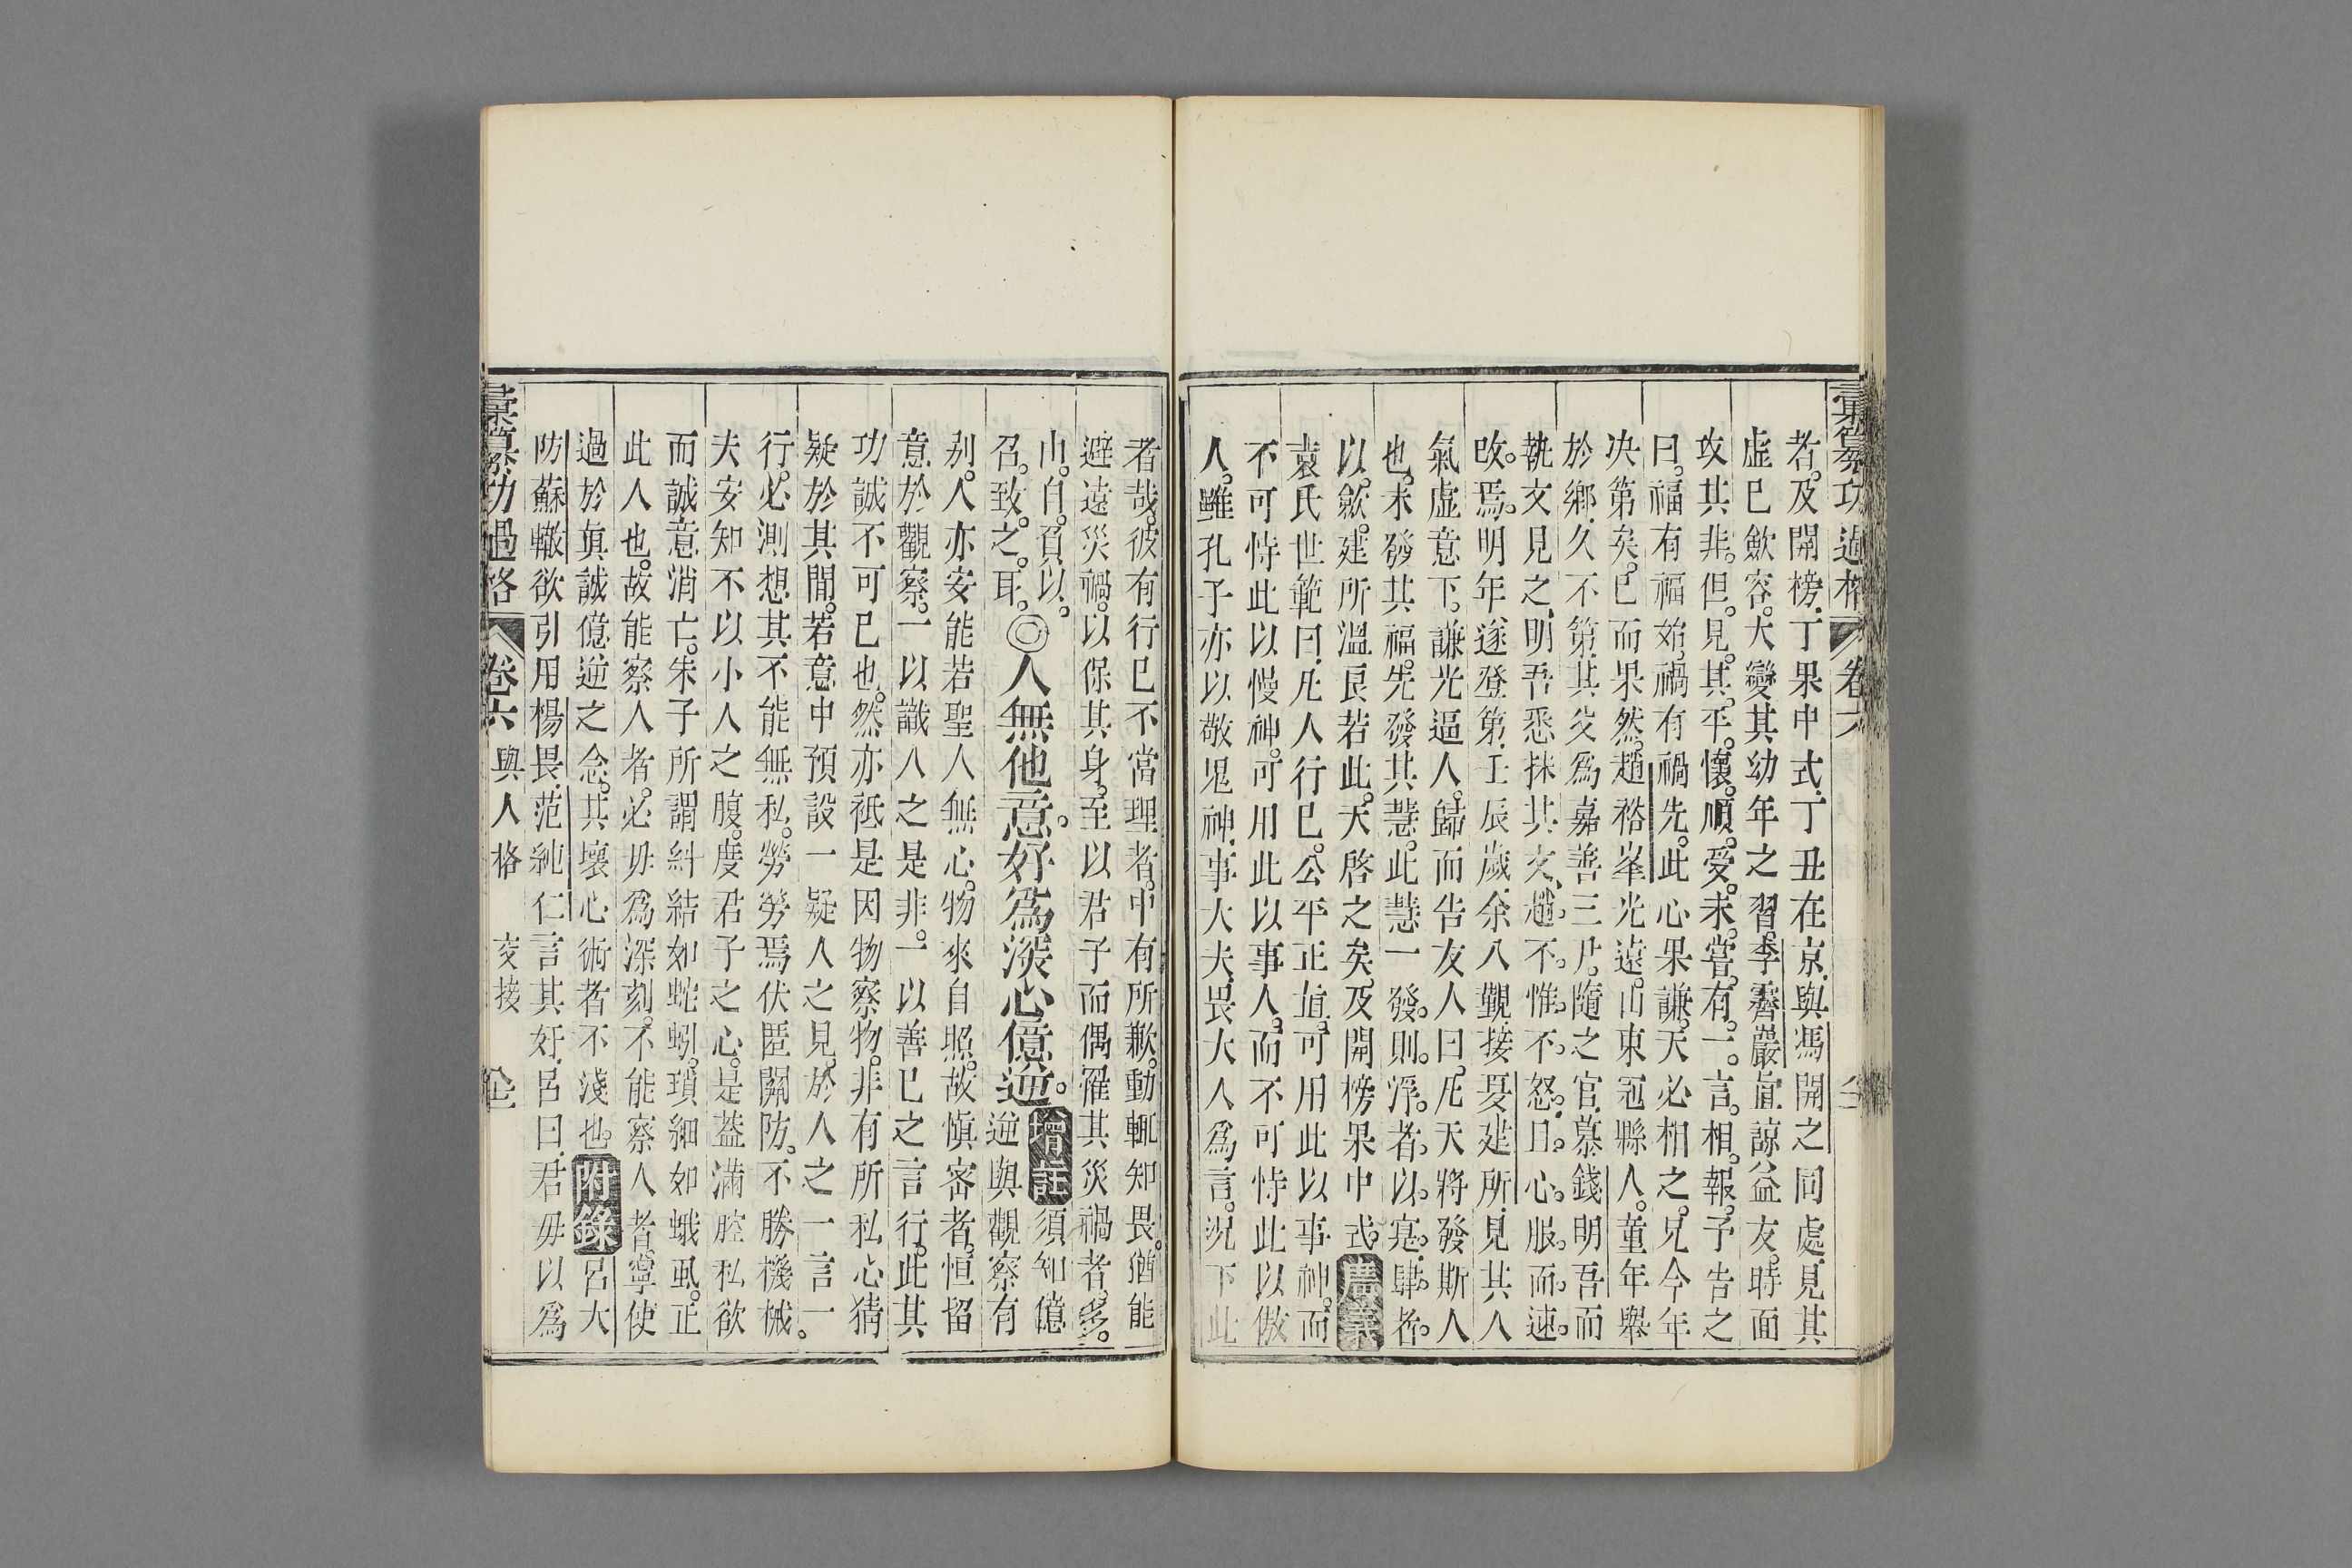 彙纂功過格 卷六
者。及開榜。丁果中式。丁丑在京。與馮開之同處。見其
虛己歛容。大變其幼年之習。李霽巖直諒益友。時面
攻其非。但見其平懷順受。未嘗有一言相報。予告之
曰。福有福始。禍有禍先。此心果謙。天必相之。兄今年
决第矣。已而果然。趙裕峯光遠。山東冠縣人。童年舉
於鄉。久不第。其父爲嘉善三尹。隨之官。慕錢明吾而
執文見之。明吾悉抹其文。趙不惟不怒。且心服而速
改焉。明年遂登第。壬辰歲。余入覲。接夏建所。見其人
氣虛意下。謙光逼人。歸而告友人曰。凡天將發斯人
也。未發其福。先發其慧。此慧一發。則浮者以寔。肆者
以歛。建所溫良若此。天啓之矣。及開榜果中式。廣義
袁氏世範曰。凡人行己。公平正直。可用此以事神。而
不可恃此以慢神。可用此以事人。而不可恃此以傲
人。雖孔子亦以敬鬼神。事大夫。畏大人爲言。況下此
者哉。彼有行己不當理者。中有所歉。動輒知畏。猶能
避遠災禍。以保其身。至以君子而偶罹其災禍者。多
由自負以
召致之耳。◎人無他意。好爲深心億逆。增註須知億
逆與觀察有
別。人亦安能若聖人無心。物來自照。故愼密者。恒留
意於觀察。一以識人之是非。一以善己之言行。此其
功誠不可已也。然亦祇是因物察物。非有所私心猜
疑於其間。若意中預設一疑人之見。於人之一言一
行。必測想其不能無私。勞勞焉伏匿關防。不勝機械。
夫安知不以小人之腹。度君子之心。是葢滿腔私欲
而誠意消亡。朱子所謂糾結如蛇蚓。瑣細如蟻虱。正
此人也。故能察人者。必毋爲深刻。不能察人者。寧使
過於眞誠。億逆之念。其壞心術者不淺也。附錄呂大
防蘇轍欲引用楊畏。范純仁言其奸。呂曰。君毋以爲
彙纂功過格 卷六 與人格 交接